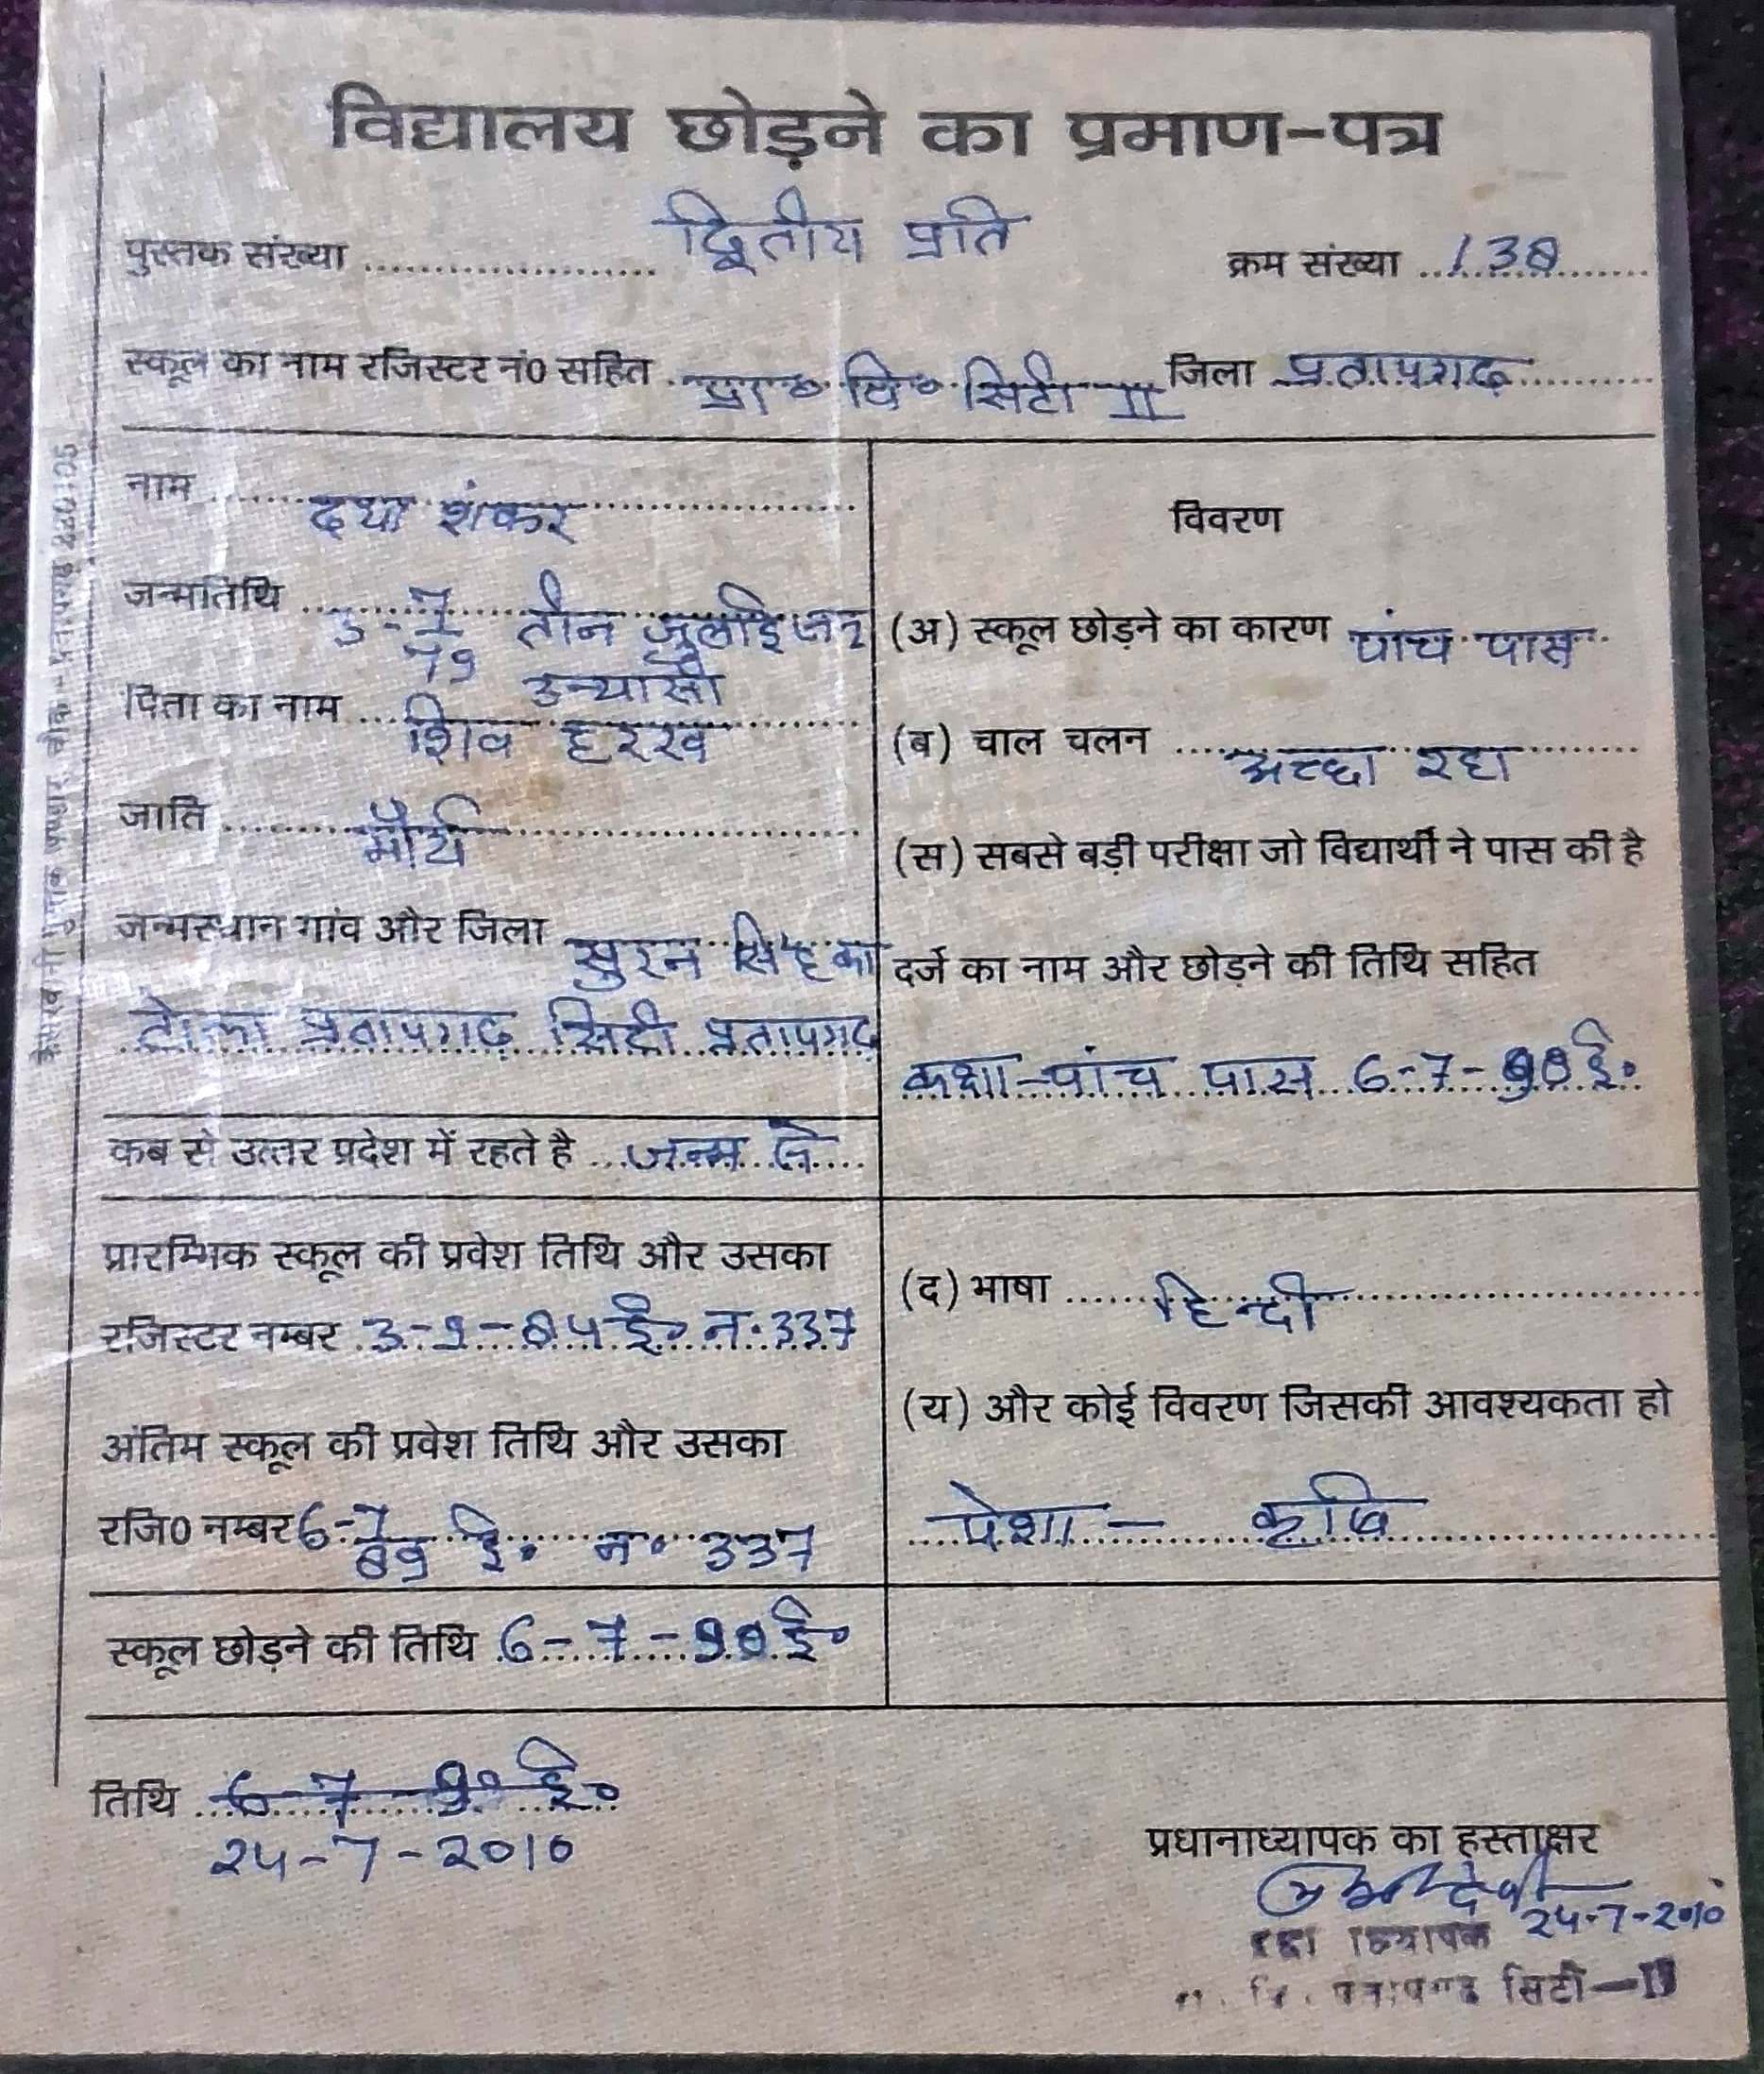 विद्यालय छोड़ने का प्रमाण-पत्र
द्वितीय प्रति
पुस्तक संख्या .................... क्रम संख्या ..130......
स्कूल का नाम रजिस्टर नं0 सहित प्रा० वि० सिटी II जिला प्रतापगढ़
नाम दया शंकर
जन्मतिथि 3-7-79 तीन जुलाई सन्
उन्यासी
पिता का नाम शिव हरख
जाति मौर्य
जन्मस्थान गांव और जिला सुरन सिंह का
टोला प्रतापगढ़ सिटी प्रतापगढ़
कब से उत्तर प्रदेश में रहते है जन्म से
प्रारम्भिक स्कूल की प्रवेश तिथि और उसका
रजिस्टर नम्बर 3-9-84 ई० न. 337
अंतिम स्कूल की प्रवेश तिथि और उसका
रजि0 नम्बर 6-7-89 ई० न० 337
स्कूल छोड़ने की तिथि 6-7-90 ई०
विवरण
(अ) स्कूल छोड़ने का कारण पांच पास
(ब) चाल चलन अच्छा रहा
(स) सबसे बड़ी परीक्षा जो विद्यार्थी ने पास की है
दर्जे का नाम और छोड़ने की तिथि सहित
कक्षा-पांच पास 6-7-90 ई०
(द) भाषा हिन्दी
(य) और कोई विवरण जिसकी आवश्यकता हो
पेशा - कृषि
तिथि 6-7-90 ई०
24-7-2010
प्रधानाध्यापक का हस्ताक्षर
24-7-2010
सिटी-II